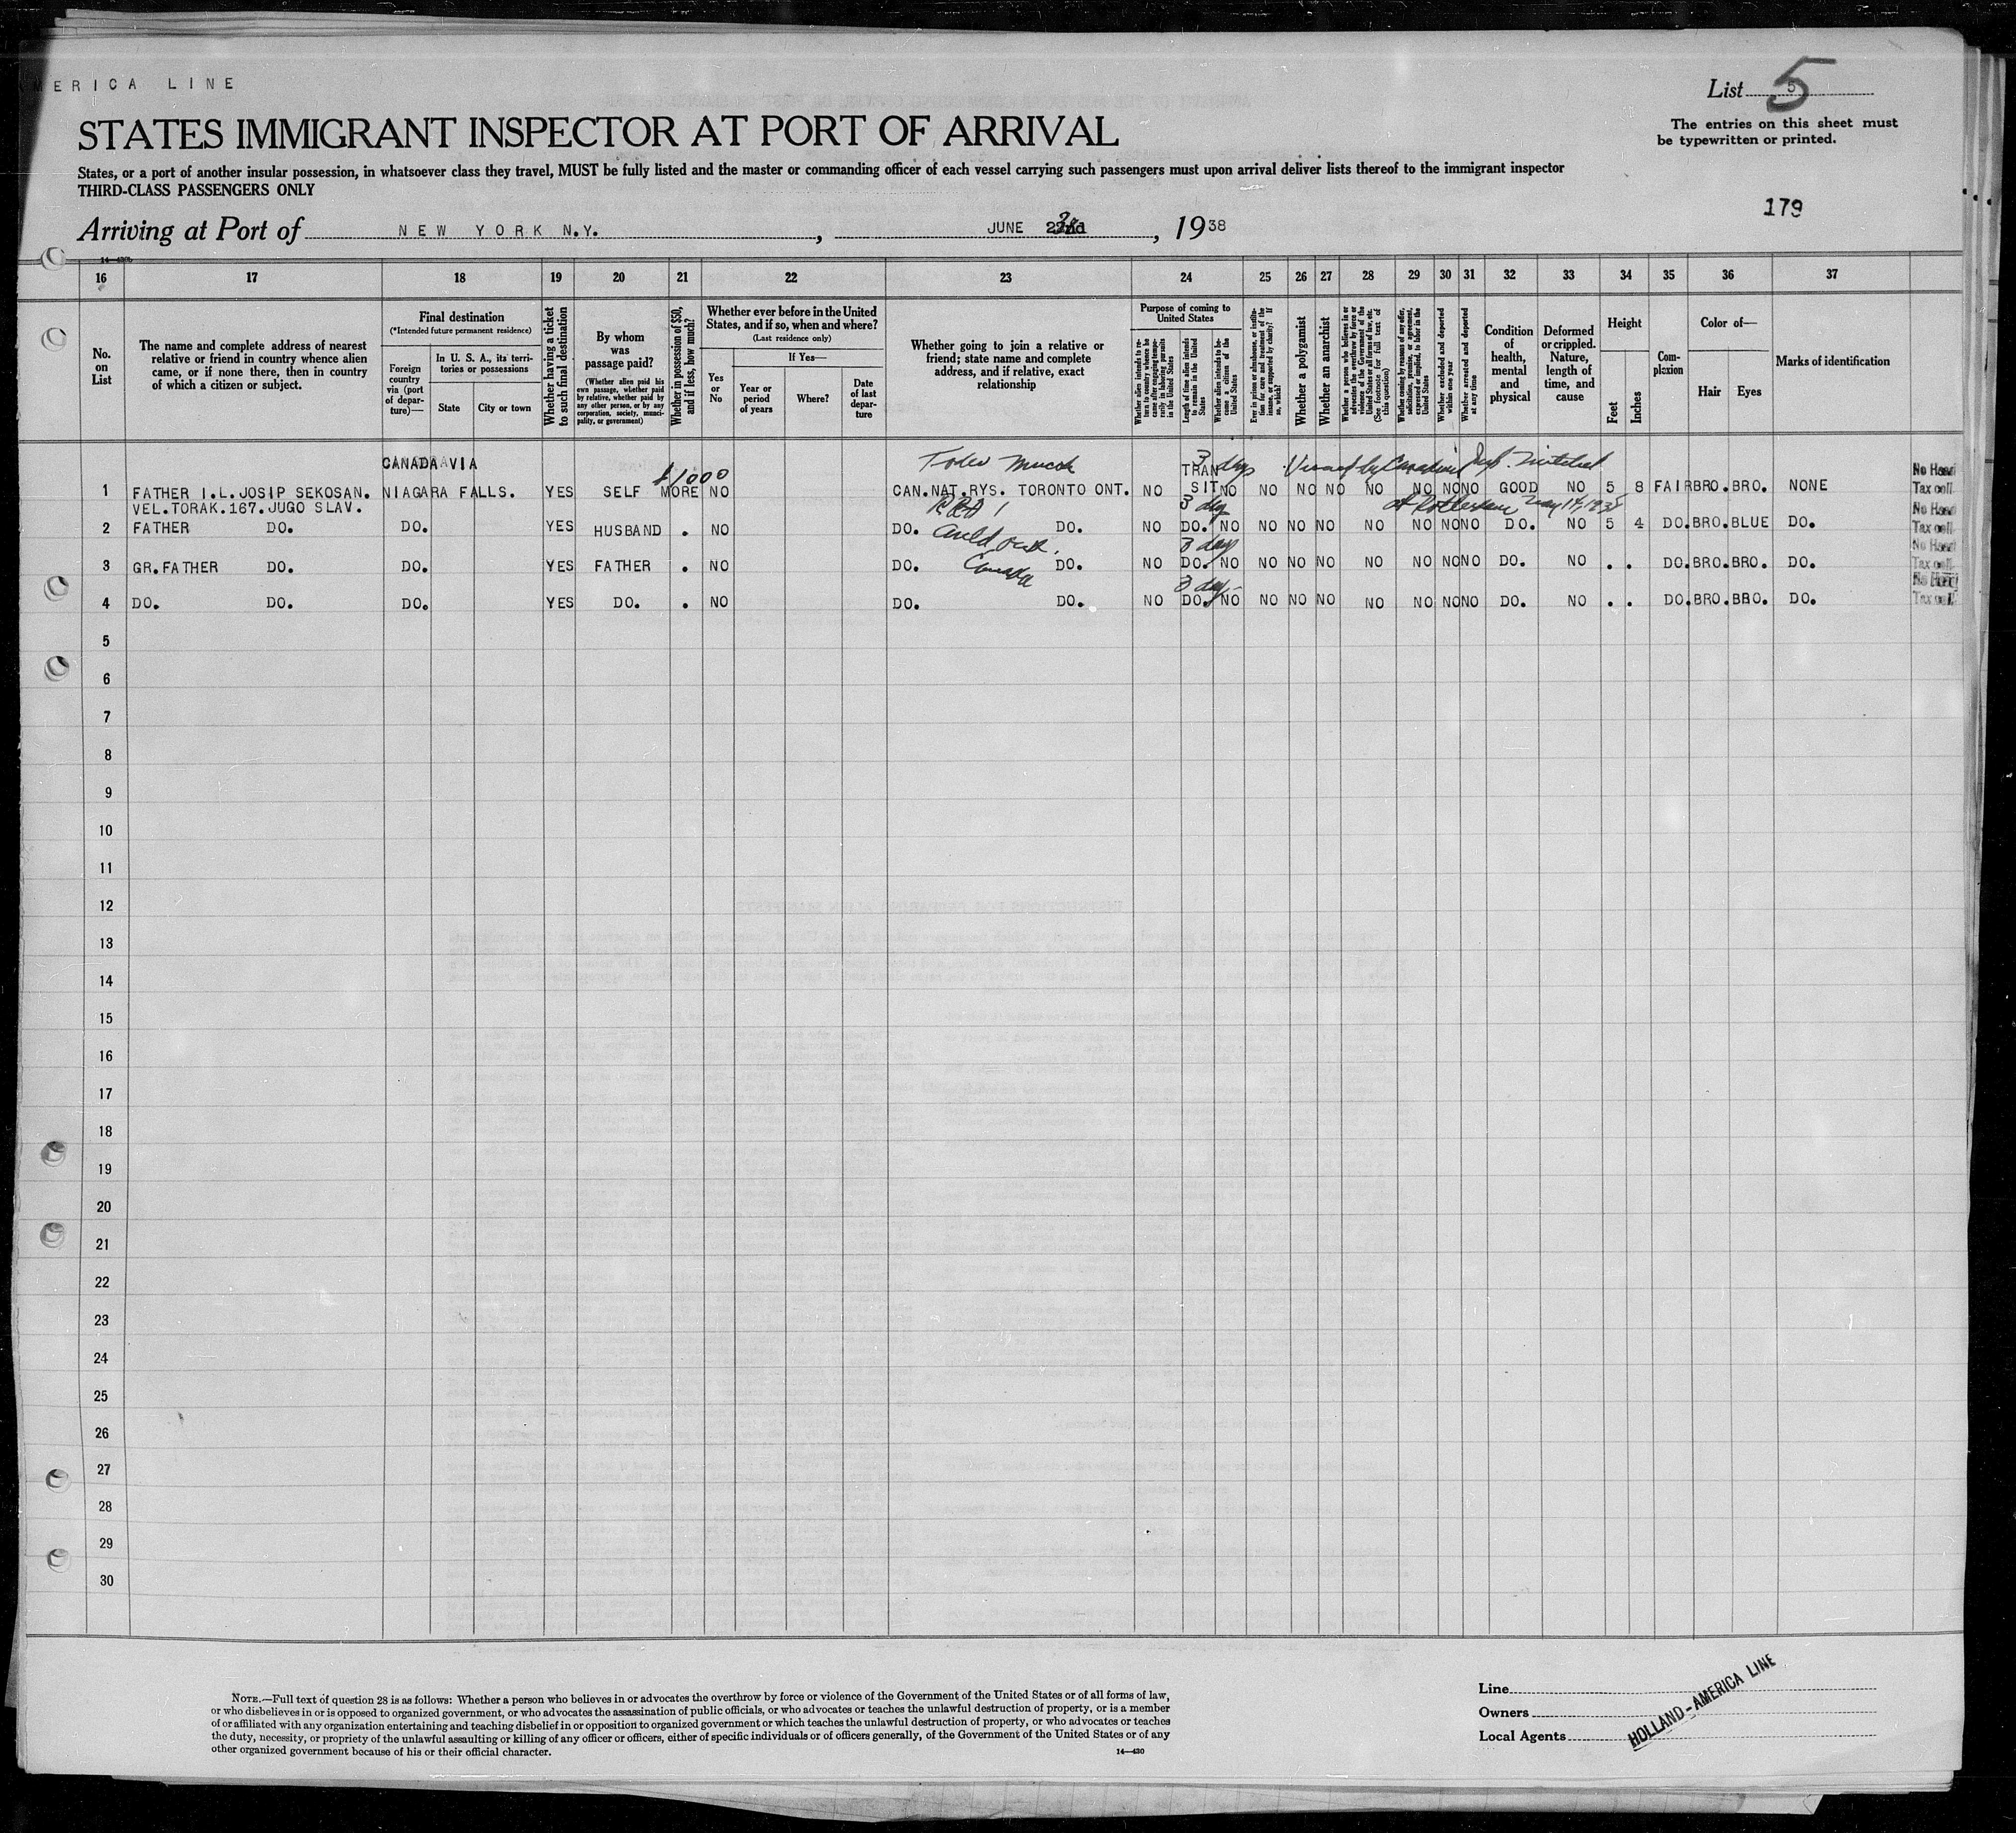 MERICA LINE
List 5
5
STATES IMMIGRANT INSPECTOR AT PORT OF ARRIVAL
The entries on this sheet must
be typewritten or printed.
States, or a port of another insular possession, in whatsoever class they travel, MUST be fully listed and the master or commanding officer of each vessel carrying such passengers must upon arrival deliver lists thereof to the immigrant inspector
THIRD-CLASS PASSENGERS ONLY
179
Arriving at Port of NEW YORK N.Y. , JUNE , 1938
16 17 18 19 20 21 22 23 24 25 26 27 28 29 30 31 32 33 34 35 36 37
No. on List
The name and complete address of nearest relative or friend in country whence alien came, or if none there, then in country of which a citizen or subject.
Final destination
(*Intended future permanent residence)
Foreign country via (port of departure)—
In U. S. A., its territories or possessions
State
City or town
Whether having a ticket to such final destination
By whom was passage paid?
(Whether alien paid his own passage, whether paid by relative, whether paid by any other person, or by any corporation, society, municipality, or government)
Whether in possession of $50, and if less, how much?
Whether ever before in the United States, and if so, when and where?
(Last residence only)
If Yes—
Yes or No
Year or period of years
Where?
Date of last departure
Whether going to join a relative or friend; state name and complete address, and if relative, exact relationship
Purpose of coming to United States
Whether alien intends to return to country whence he came after engaging temporarily in laboring pursuits in the United States
Length of time alien intends to remain in the United States
Whether alien intends to become a citizen of the United States
Ever in prison or almshouse, or institution for care and treatment of the insane, or supported by charity? If so, which?
Whether a polygamist
Whether an anarchist
Whether a person who believes in or advocates the overthrow by force or violence of the Government of the United States or all forms of law, etc. (See footnote for full text of this question)
Whether coming by reason of any offer, solicitation, promise, or agreement, expressed or implied, to labor in the United States
Whether excluded and deported within one year
Whether arrested and deported at any time
Condition of health, mental and physical
Deformed or crippled. Nature, length of time, and cause
Height
Feet
Inches
Complexion
Color of—
Hair
Eyes
Marks of identification
CANADA VIA $1000 3 days
TRAN
1 FATHER I.L.JOSIP SEKOSAN. NIAGARA FALLS. YES SELF MORE NO CAN.NAT.RYS. TORONTO ONT. NO SIT NO NO NO NO NO NO NO NO GOOD NO 5 8 FAIR BRO. BRO. NONE
VEL.TORAK.167.JUGO SLAV. 3 day
2 FATHER DO. DO. YES HUSBAND . NO DO. DO. NO DO. NO NO NO NO NO NO NO NO DO. NO 5 4 DO. BRO. BLUE DO.
3 day
3 GR.FATHER DO. DO. YES FATHER . NO DO. Canada DO. NO DO. NO NO NO NO NO NO NO NO DO. NO . . DO. BRO. BRO. DO.
3 day
4 DO. DO. DO. YES DO. . NO DO. DO. NO DO. NO NO NO NO NO NO NO NO DO. NO . . DO. BRO. BRO. DO.
5
6
7
8
9
10
11
12
13
14
15
16
17
18
19
20
21
22
23
24
25
26
27
28
29
30
NOTE.—Full text of question 28 is as follows: Whether a person who believes in or advocates the overthrow by force or violence of the Government of the United States or of all forms of law,
or who disbelieves in or is opposed to organized government, or who advocates the assassination of public officials, or who advocates or teaches the unlawful destruction of property, or is a member
of or affiliated with any organization entertaining and teaching disbelief in or opposition to organized government or which teaches the unlawful destruction of property, or who advocates or teaches
the duty, necessity, or propriety of the unlawful assaulting or killing of any officer or officers, either of specific individuals or of officers generally, of the Government of the United States or of any
other organized government because of his or their official character.
14—430
Line
Owners
Local Agents
HOLLAND-AMERICA LINE